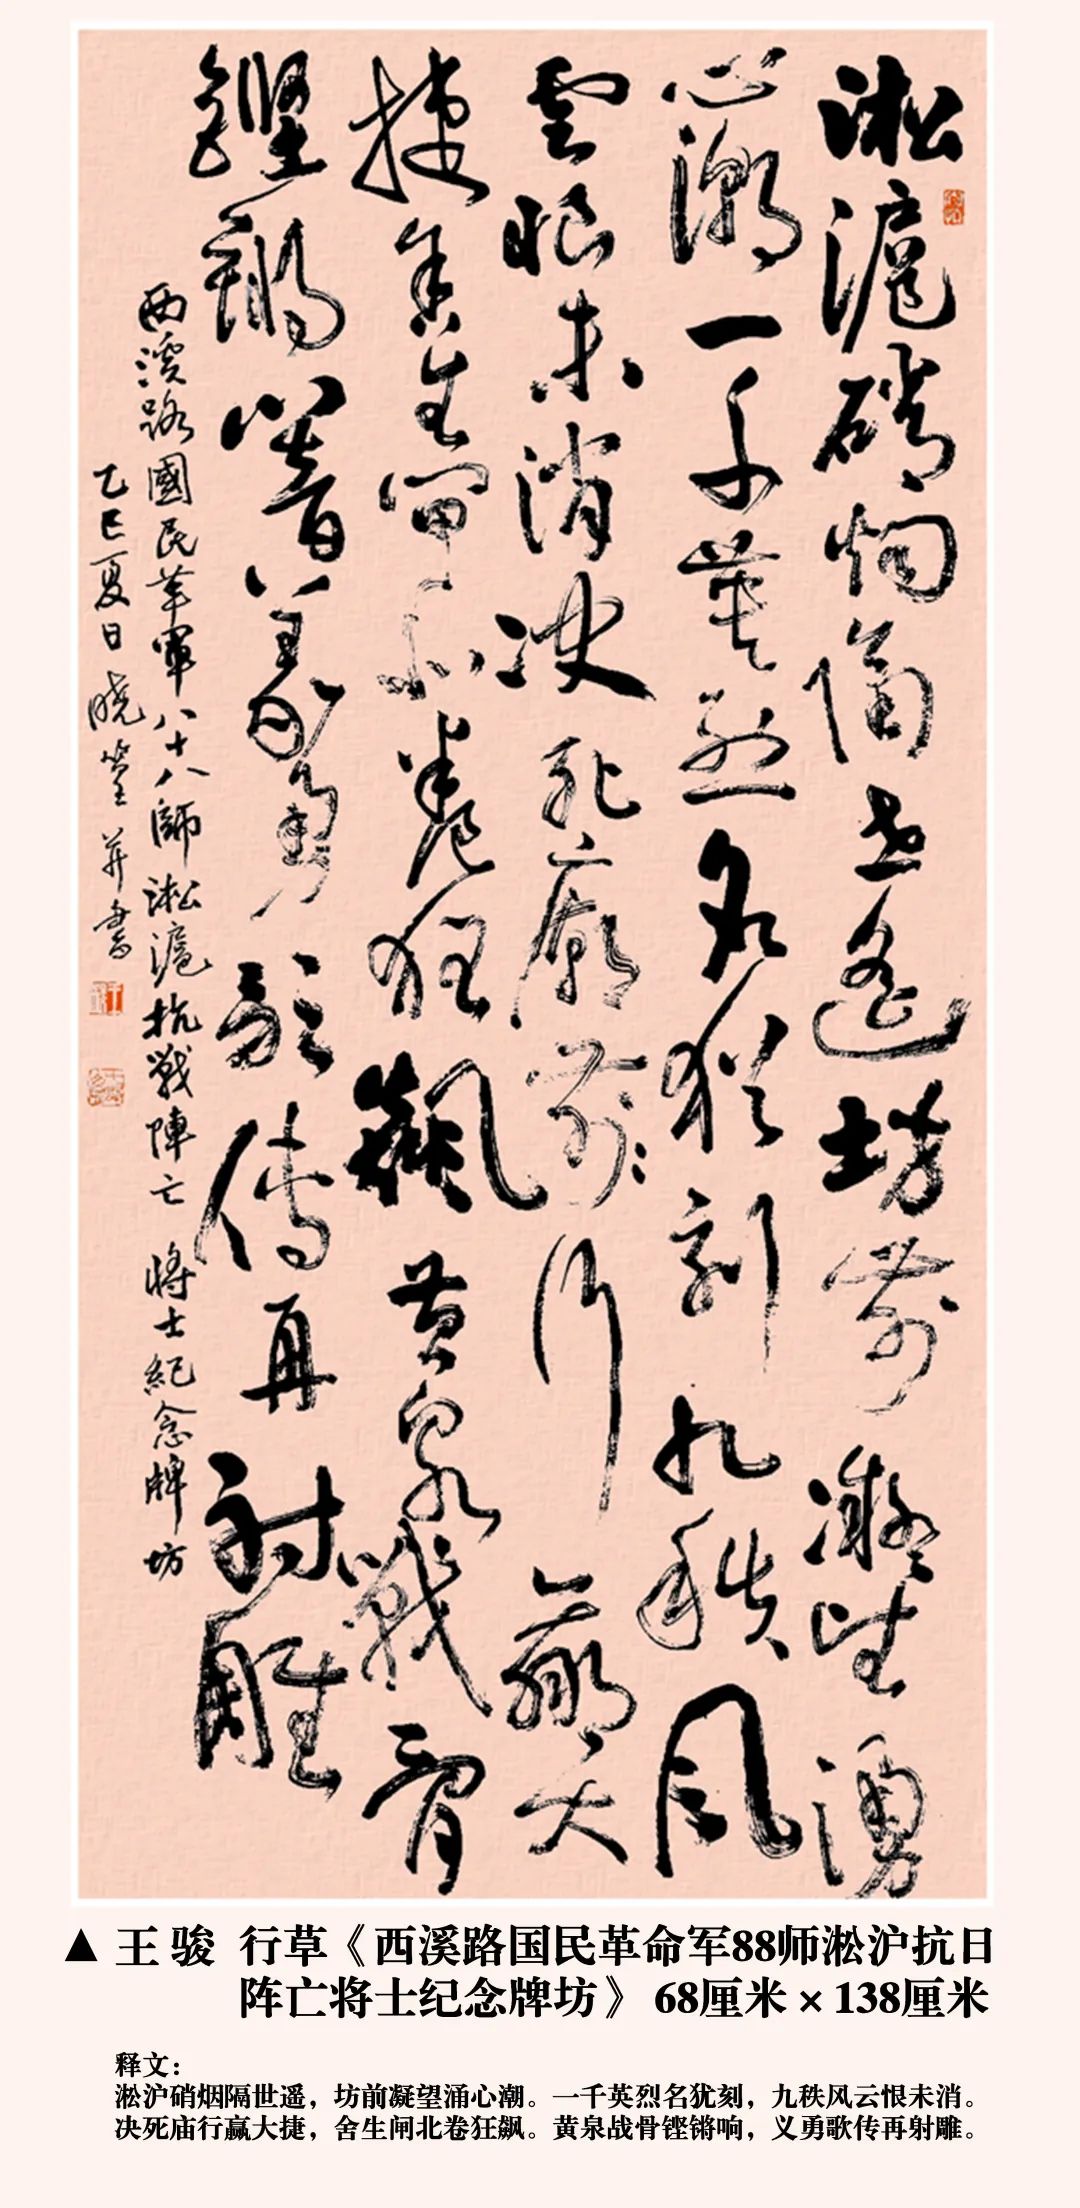 淞滬硝烟隔世遥坊前凝望湧
心潮一千英烈名猶刻九秩风
雲恨未消决死廟前行赢大
捷舍生闸北卷狂飆黄泉戰骨
鏗鏘響義勇歌傳再射雕
西溪路國民革軍八十八師淞滬抗戰陣亡將士紀念牌坊
乙巳夏日曉并書
▲ 王骏 行草《西溪路国民革命军88师淞沪抗日
阵亡将士纪念牌坊》68厘米×138厘米
释文：
淞沪硝烟隔世遥，坊前凝望涌心潮。一千英烈名犹刻，九秩风云恨未消。
决死庙行赢大捷，舍生闸北卷狂飙。黄泉战骨铿锵响，义勇歌传再射雕。